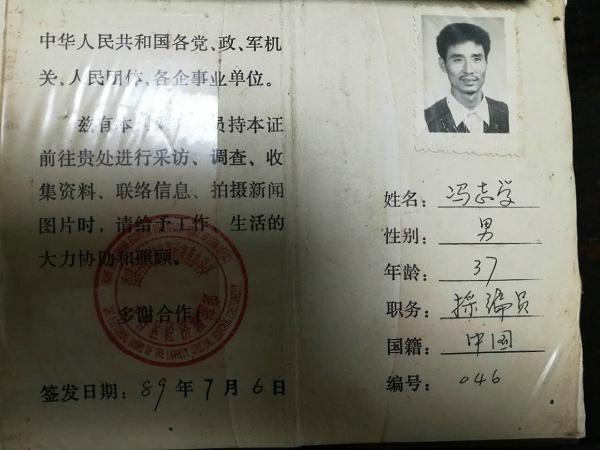 中华人民共和国各党、政、军机
关、人民团体、各企事业单位。
兹有本 员持本证
前往贵处进行采访、调查、收
集资料、联络信息、拍摄新闻
图片时，请给予工作、生活的
大力协助和照顾。
多谢合作！
签发日期：89年7月6日
姓名：冯志学
性别：男
年龄：37
职务：採编员
国籍：中国
编号：046